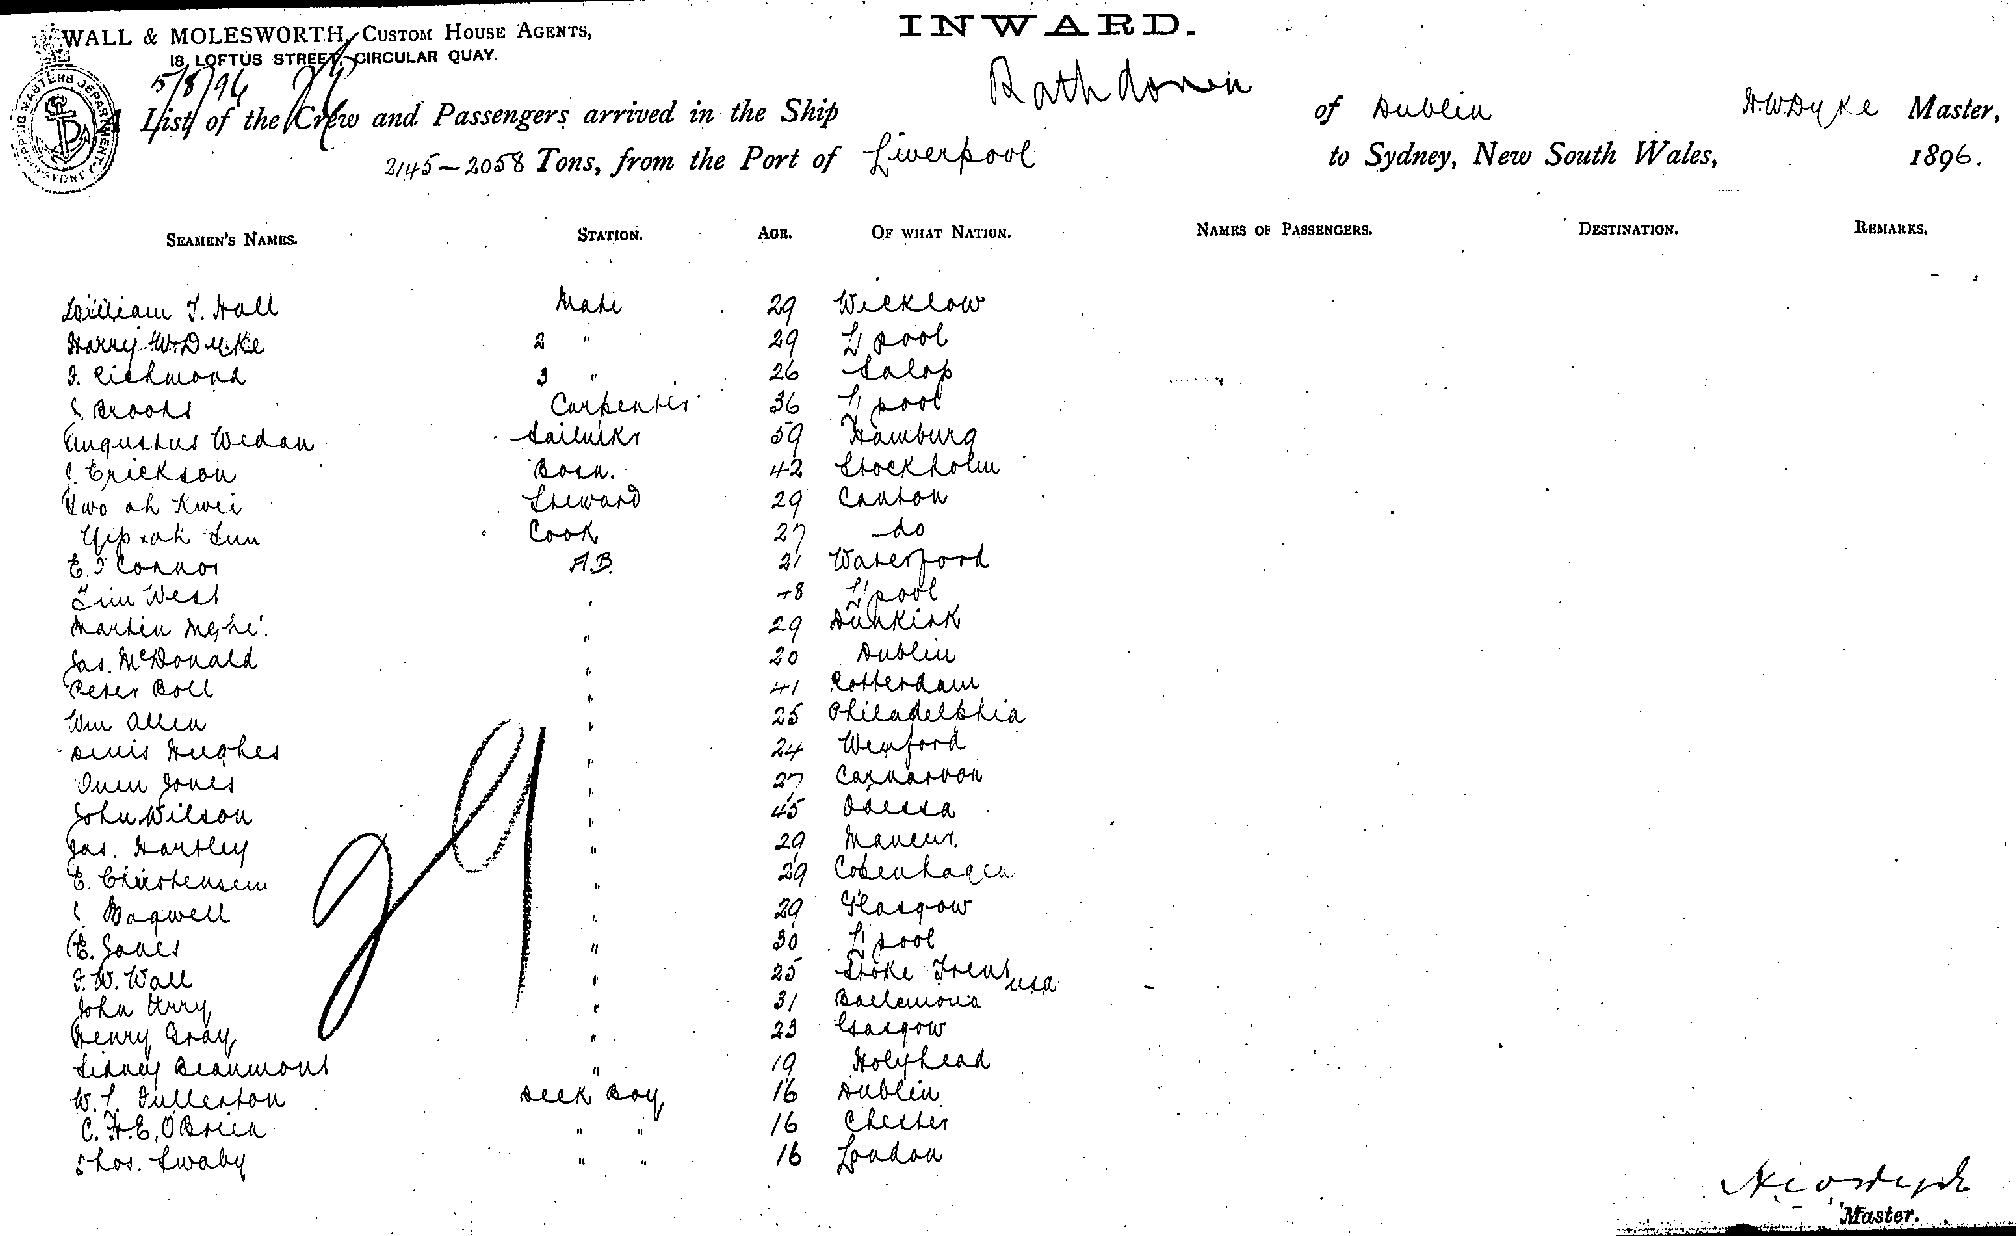 INWARD.
WALL & MOLESWORTH, CUSTOM HOUSE AGENTS,
18, LOFTUS STREET, CIRCULAR QUAY.
5/8/96
A List of the Crew and Passengers arrived in the Ship Rathdown of Dublin H.W Dyke Master,
2145-2058 Tons, from the Port of Liverpool to Sydney, New South Wales, 1896.
SEAMEN'S NAMES. STATION. AGE. OF WHAT NATION. NAMES OF PASSENGERS. DESTINATION. REMARKS.
William T. Hall Mate 29 Wicklow
Harry W. Dyke 2 " 29 L'pool
J. Richmond 3 " 26 Salop
Brooks Carpenter 36 L'pool
Augustus Wedan Sailmkr 59 Hamburg
Erickson Bosn. 42 Stockholm
ah Kwei Steward 29 Canton
Yip ah Sun Cook 27 do
E. O'Connor A.B. 21 Waterford
Tim West " 48 L'pool
Martin " 29 Dunkirk
Jas. McDonald " 20 Dublin
Peter Boll " 41 Rotterdam
Wm Allen " 25 Philadelphia
Denis Hughes " 24 Wexford
Owen Jones " 27 Carnarvon
John Wilson " 45 Odessa
Jas. Hartley " 29
E. Christensen " 29 Copenhagen
Bagwell " 29 Glasgow
E. Jones " 30 L'pool
F. W. Wall " 25 Stoke Trent
John Urry " 31 usa
Henry Gray " 23 Glasgow
Sidney Beaumont " 19 Holyhead
W. Fullerton Deck Boy 16 Dublin
C. H. E. O'Brien " " 16 Chester
Thos. Swaby " " 16 London
29
Master.